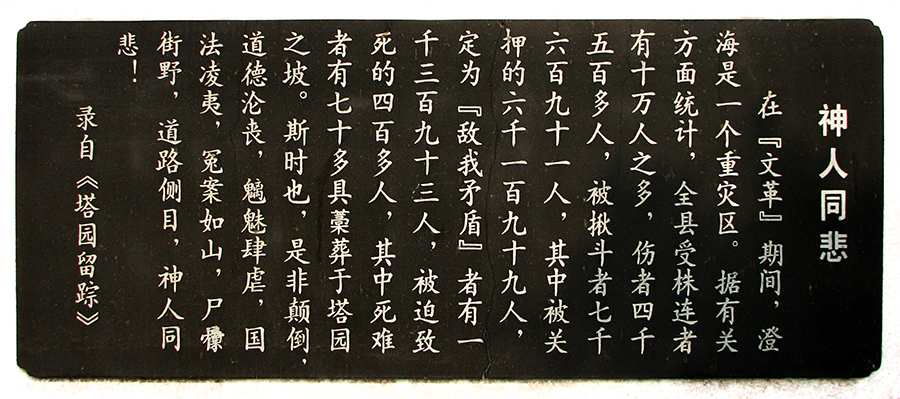 神人同悲
在『文革』期间，澄
海是一个重灾区。据有关
方面统计，全县受株连者
有十万人之多，伤者四千
五百多人，被揪斗者七千
六百九十一人，其中被关
押的六千一百九十九人，
定为『敌我矛盾』者有一
千三百九十三人，被迫致
死的四百多人，其中死难
者有七十多具藁葬于塔园
之坡。斯时也，是非颠倒，
道德沦丧，魑魅肆虐，国
法凌夷，冤案如山，尸
街野，道路侧目，神人同
悲！
录自《塔园留踪》